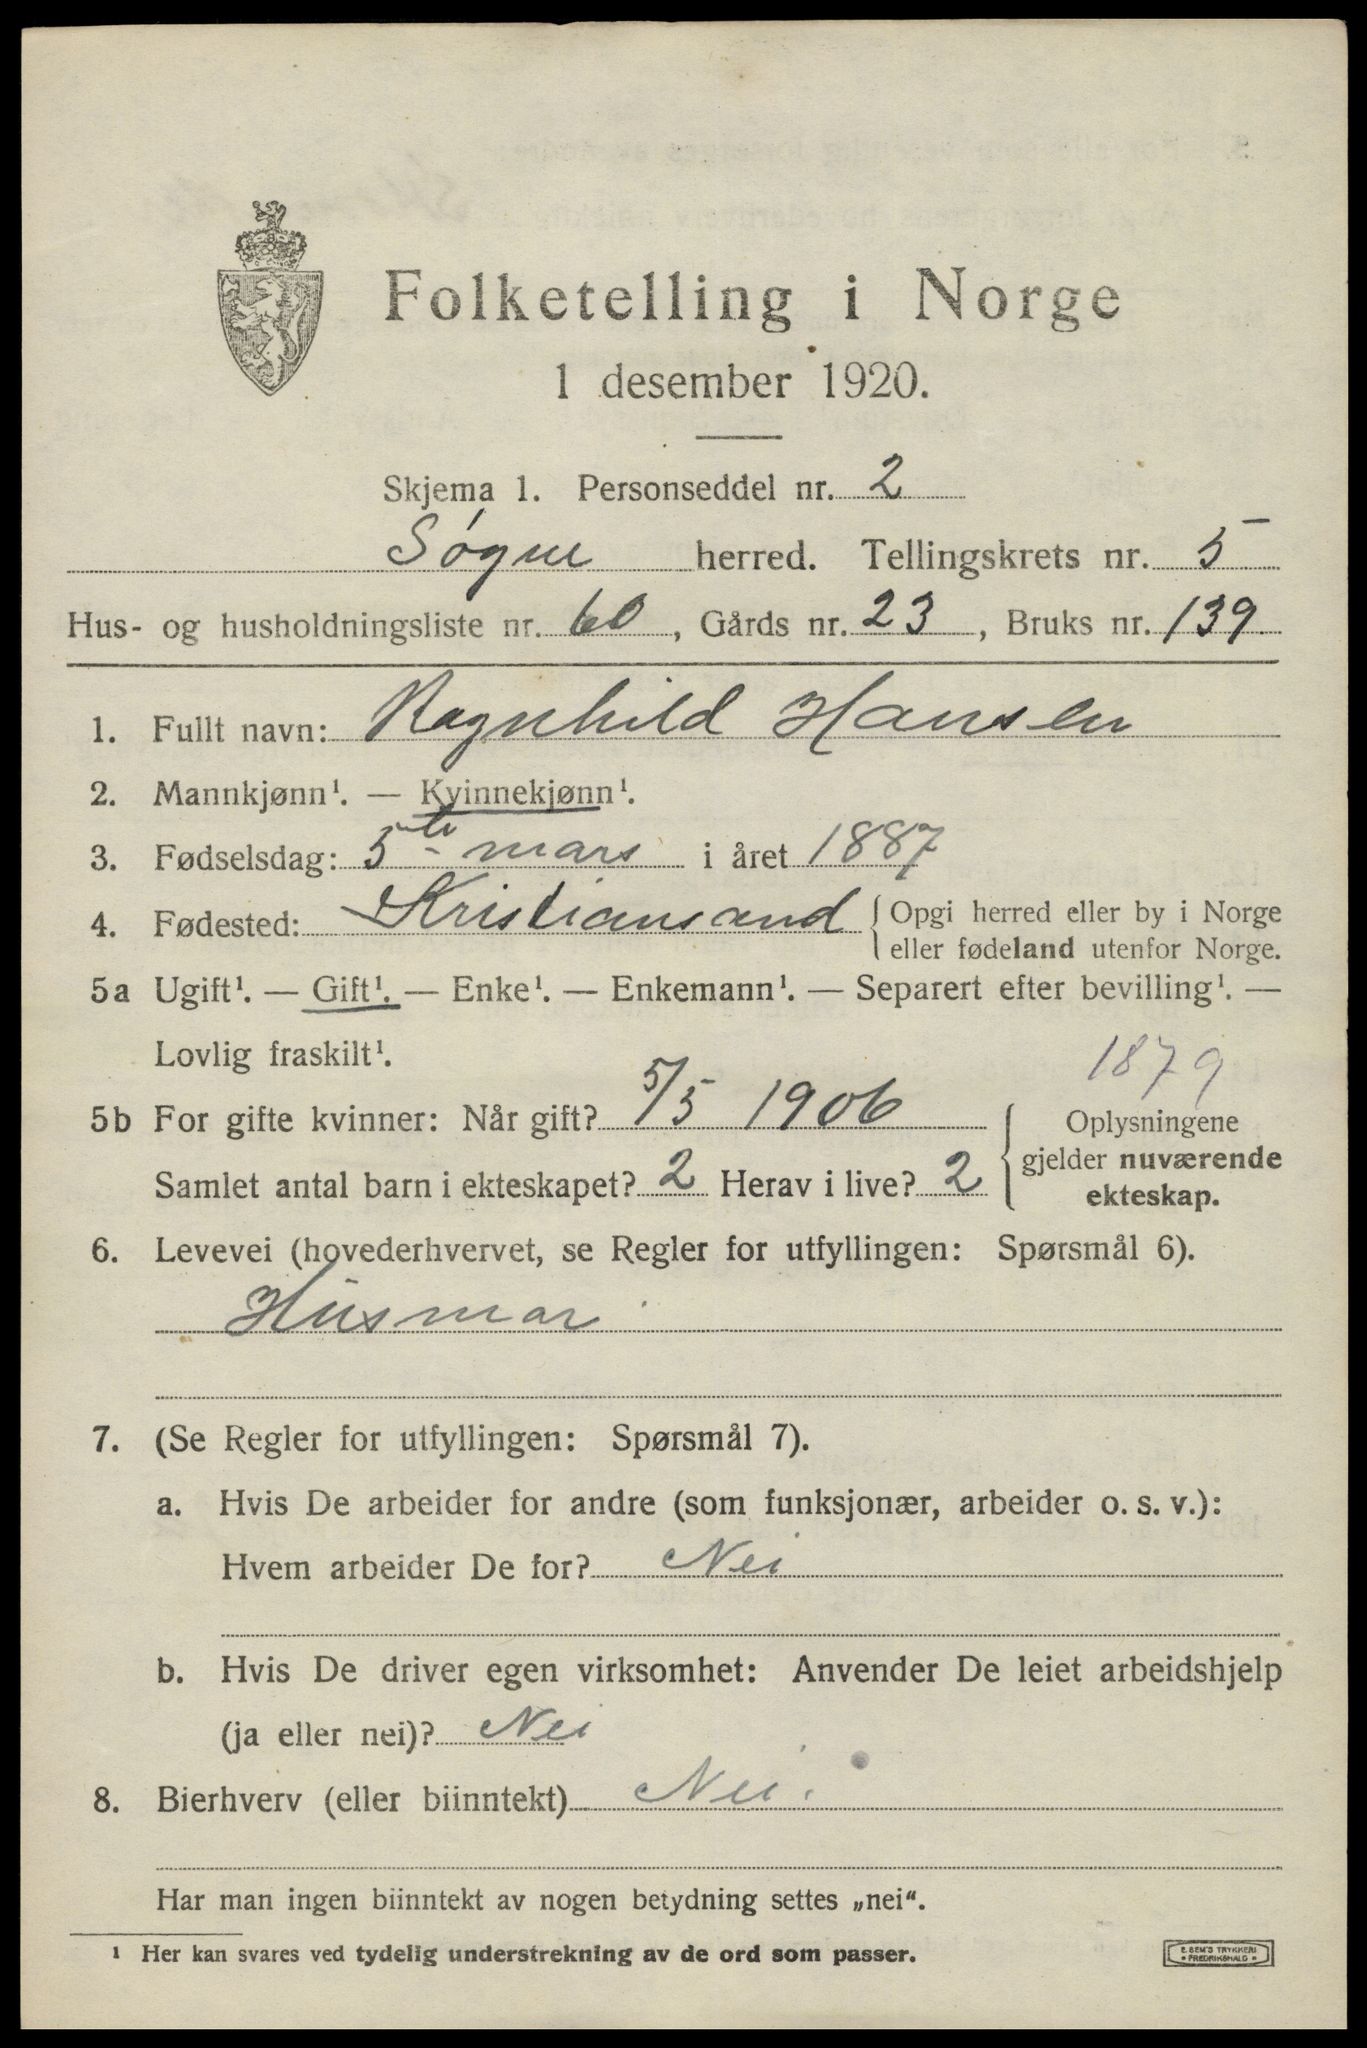 Folketelling i Norge
1 desember 1920.
Skjema 1. Personseddel nr. 2
Søgne herred. Tellingskrets nr. 5
Hus- og husholdningsliste nr. 60, Gårds nr. 23, Bruks nr. 139
1. Fullt navn: Ragnhild Hansen
2. Mannkjønn¹. — Kvinnekjønn¹.
3. Fødselsdag: 5te mars i året 1887
4. Fødested: Kristiansand { Opgi herred eller by i Norge
eller fødeland utenfor Norge.
5a Ugift¹. — Gift¹. — Enke¹. — Enkemann¹. — Separert efter bevilling¹. —
Lovlig fraskilt¹.
1879
5b For gifte kvinner: Når gift? 5/5 1906
Samlet antal barn i ekteskapet? 2 Herav i live? 2
Oplysningene
gjelder nuværende
ekteskap.
6. Levevei (hovederhvervet, se Regler for utfyllingen: Spørsmål 6).
Husmor
7. (Se Regler for utfyllingen: Spørsmål 7).
a. Hvis De arbeider for andre (som funksjonær, arbeider o. s. v.):
Hvem arbeider De for? Nei
b. Hvis De driver egen virksomhet: Anvender De leiet arbeidshjelp
(ja eller nei)? Nei
8. Bierhverv (eller biinntekt) Nei.
Har man ingen biinntekt av nogen betydning settes „nei“.
¹ Her kan svares ved tydelig understrekning av de ord som passer.
E. SEM'S TRYKKERI
• FREDRIKSHALD •